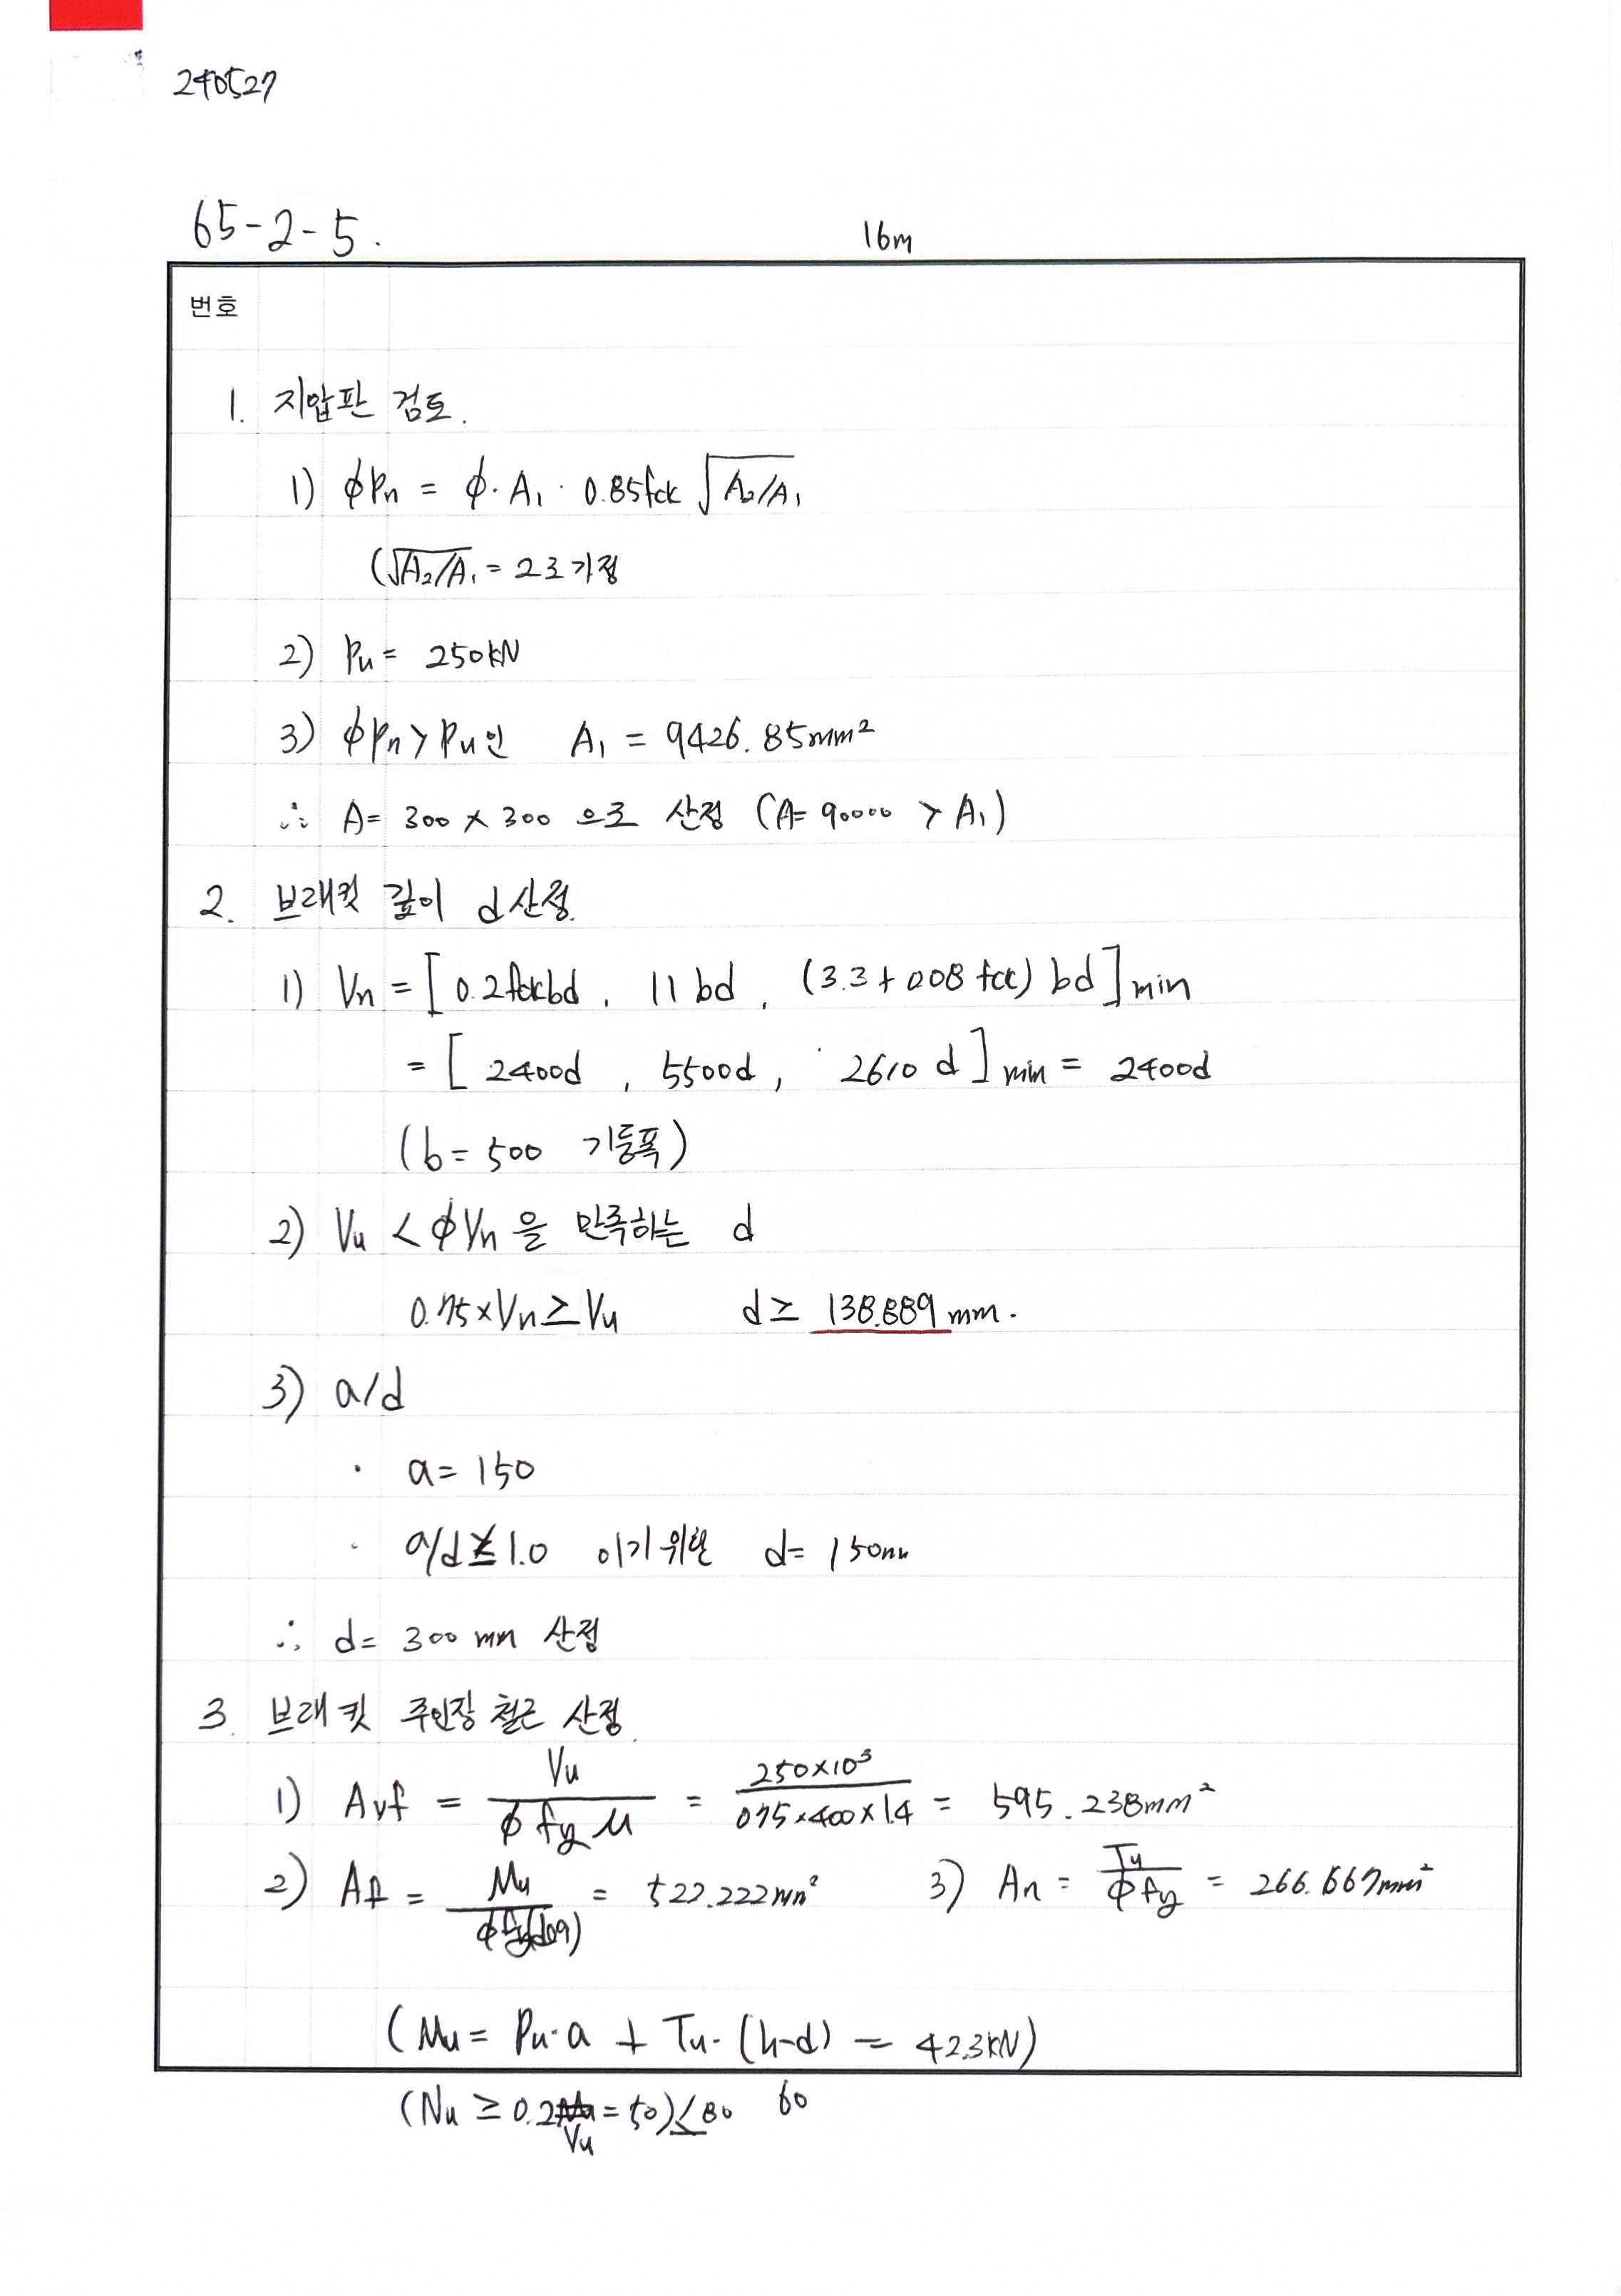 240527
65-2-5.
16m
번호
1. 지압판 검토.
1) ϕPn = ϕ·A₁·0.85fck √A₂/A₁
(√A₂/A₁ = 2로 가정
2) Pu = 250kN
3) ϕPn > Pu인 A₁ = 9426.85mm²
∴ A = 300 × 300 으로 산정 (A= 90000 > A₁)
2. 브래킷 깊이 d 산정.
1) Vn = [0.2fckbd, 11bd, (3.3+0.08fck)bd]min
= [2400d, 5500d, 2610d]min = 2400d
(b = 500 기둥폭)
2) Vu < ϕVn을 만족하는 d
0.75×Vn ≥ Vu d ≥ 138.889mm.
3) a/d
· a = 150
· a/d ≤ 1.0 이기 위한 d = 150mm
∴ d = 300mm 산정
3. 브래킷 주인장 철근 산정.
1) Avf = Vu / ϕ fy μ = 250×10³ / 0.75×400×1.4 = 595.238mm²
2) Af = Mu / ϕfy(d0.9) = 522.222mm² 3) An = Tu / ϕfy = 266.667mm²
(Mu = Pu·a + Tu·(h-d) = 42.3kN)
(Nu ≥ 0.2Vu = 50) ≤ 80 60